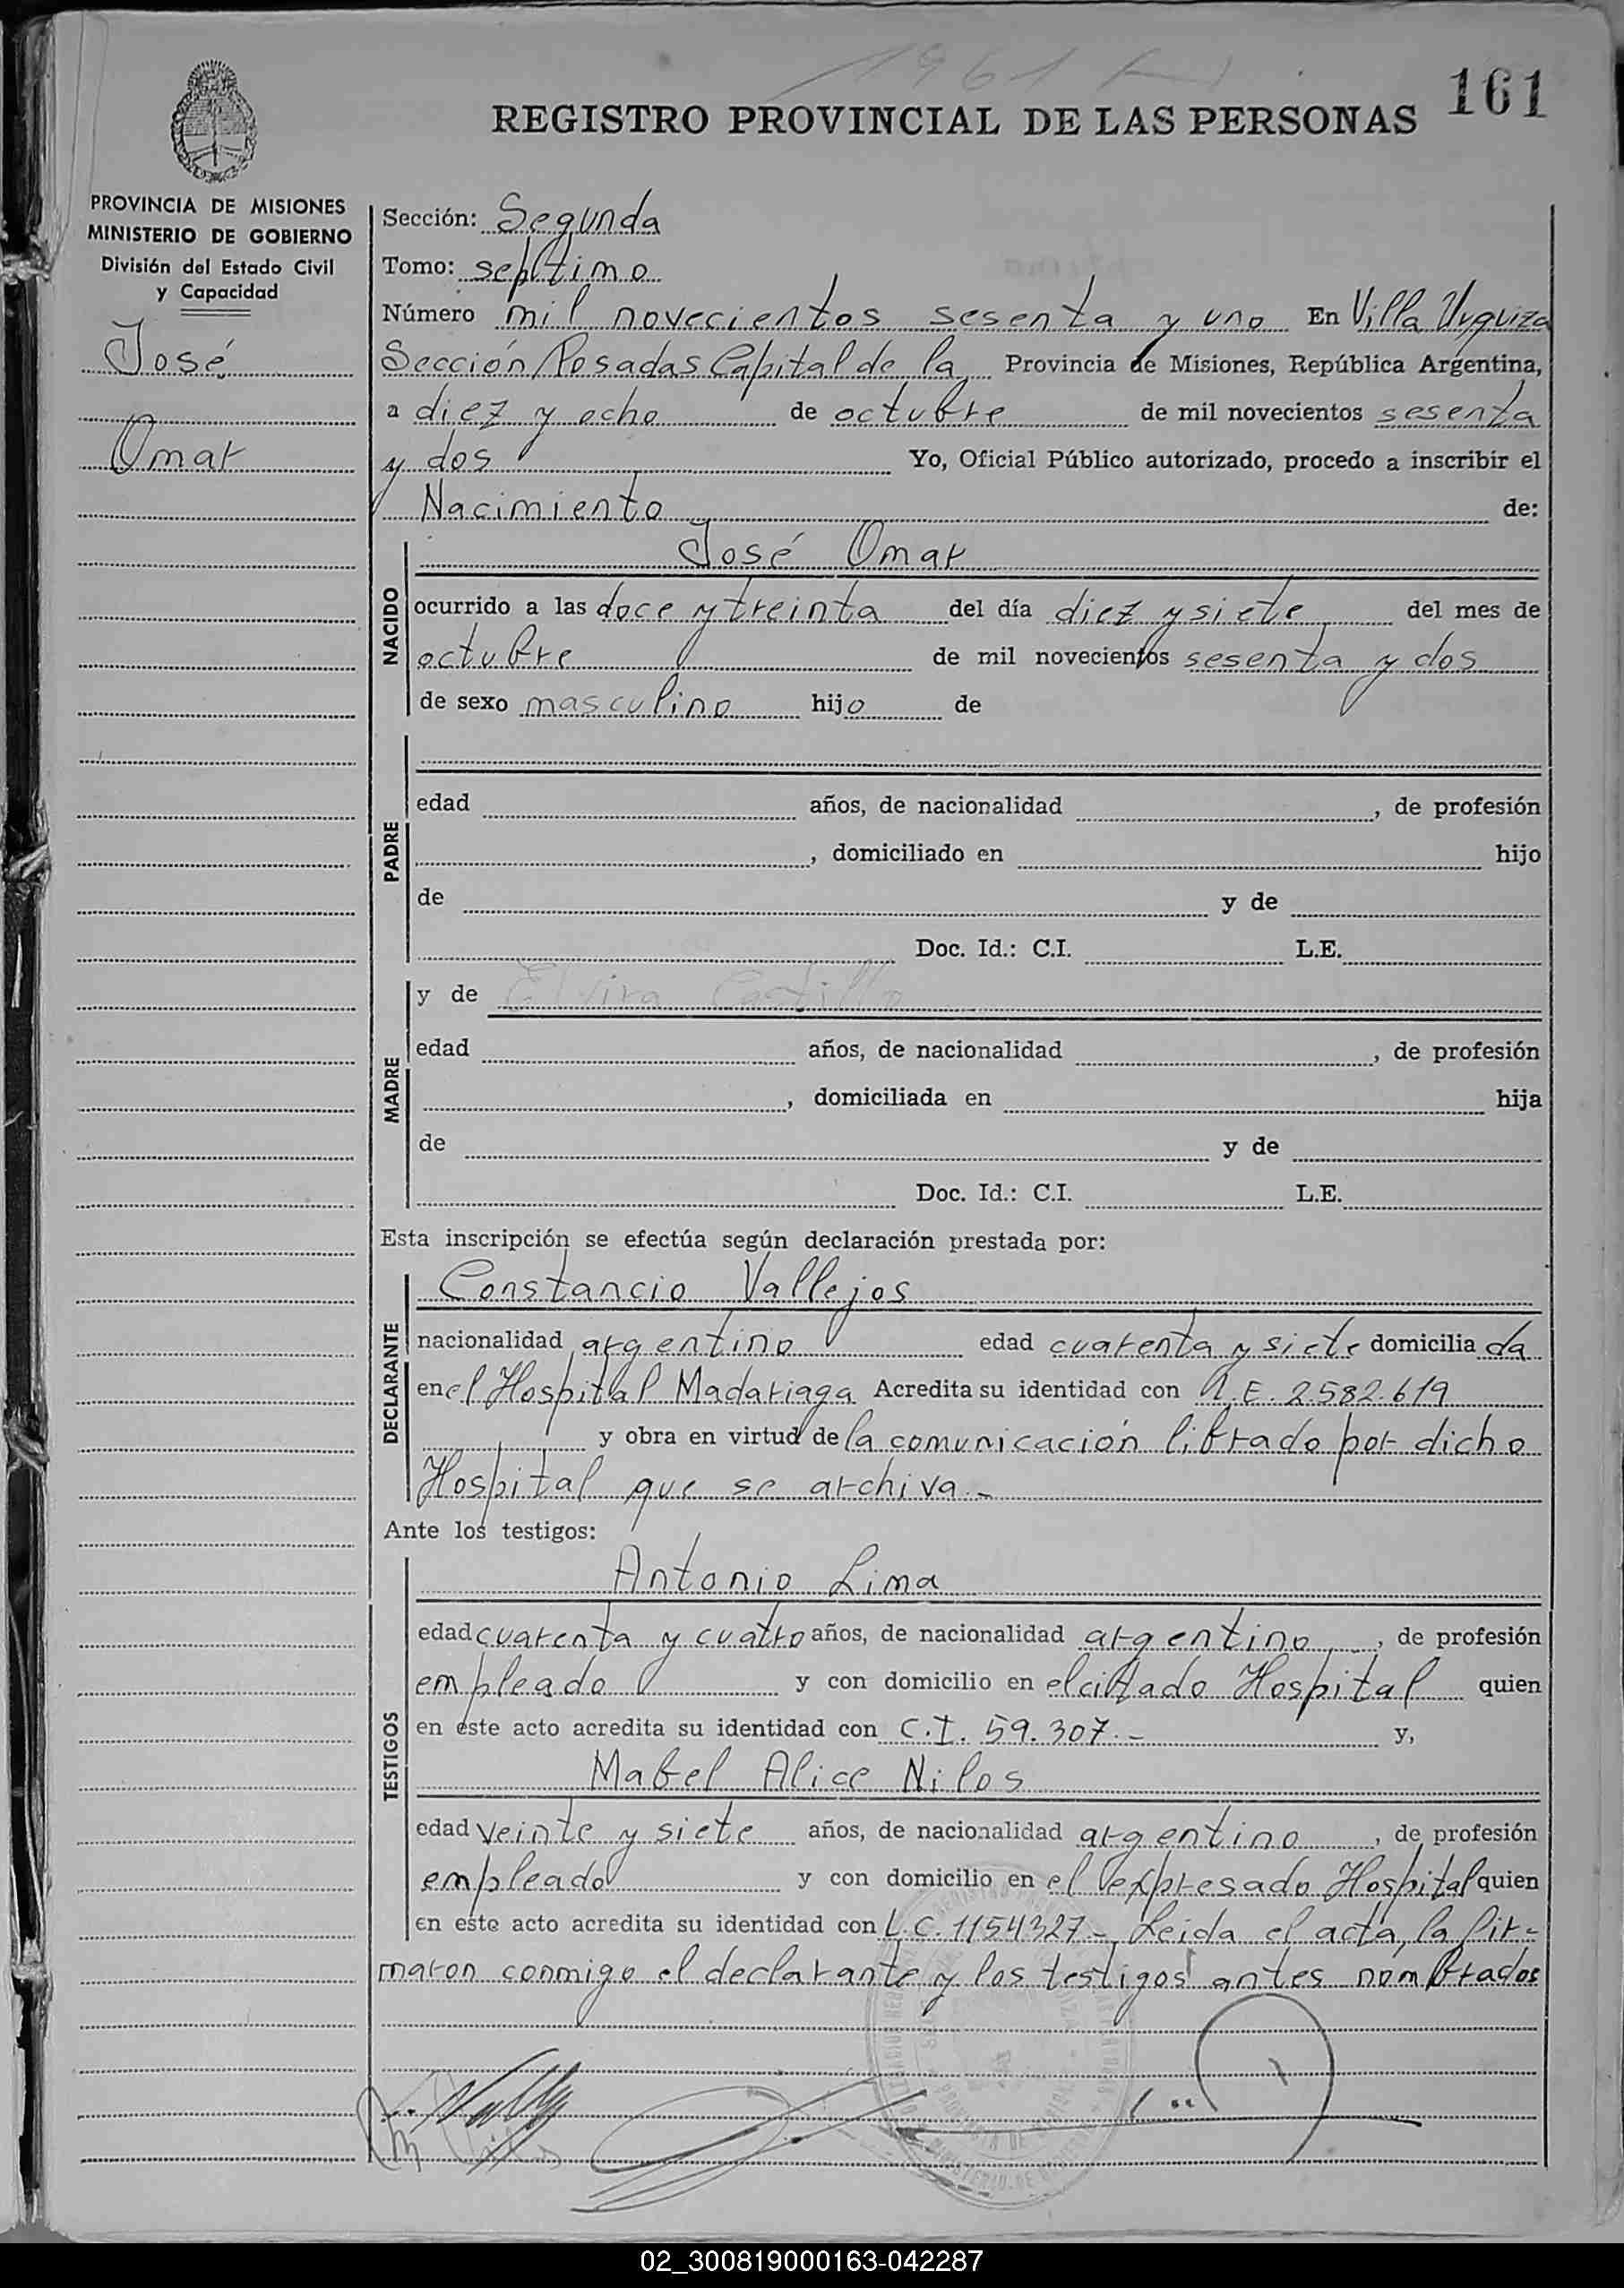 1961
161
REGISTRO PROVINCIAL DE LAS PERSONAS
PROVINCIA DE MISIONES
MINISTERIO DE GOBIERNO
División del Estado Civil
y Capacidad
José
Omar
Sección: Segunda
Tomo: septimo
Número mil novecientos sesenta y uno En Villa Urquiza
Sección Posadas Capital de la Provincia de Misiones, República Argentina,
a diez y ocho de octubre de mil novecientos sesenta
y dos Yo, Oficial Público autorizado, procedo a inscribir el
Nacimiento de:
NACIDO
José Omar
ocurrido a las doce y treinta del día diez y siete del mes de
octubre de mil novecientos sesenta y dos
de sexo masculino hijo de
PADRE
edad años, de nacionalidad , de profesión
, domiciliado en hijo
de y de
Doc. Id.: C.I. L.E.
MADRE
y de Elvira Castillo
edad años, de nacionalidad , de profesión
, domiciliada en hija
de y de
Doc. Id.: C.I. L.E.
Esta inscripción se efectúa según declaración prestada por:
DECLARANTE
Constancio Vallejos
nacionalidad argentino edad cuarenta y siete domicilia da
en el Hospital Madariaga Acredita su identidad con L.E. 2.582.619
y obra en virtud de la comunicación librado por dicho
Hospital que se archiva.-
Ante los testigos:
TESTIGOS
Antonio Lima
edad cuarenta y cuatro años, de nacionalidad argentino, de profesión
empleado y con domicilio en el citado Hospital quien
en este acto acredita su identidad con C.I. 59.307.- y,
Mabel Alice Nilos
edad veinte y siete años, de nacionalidad argentino, de profesión
empleado y con domicilio en el expresado Hospital quien
en este acto acredita su identidad con L.C. 1154327- Leida el acta, la fir-
maron conmigo el declarante y los testigos antes nombrados
02_300819000163-042287